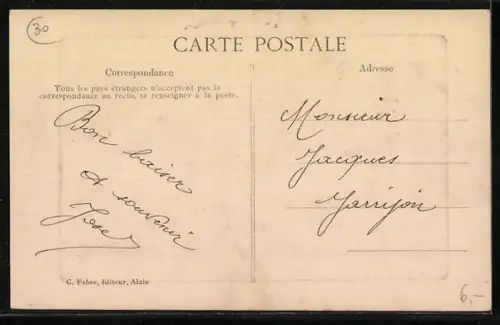 30
CARTE POSTALE
Correspondance
Tous les pays étrangers n'acceptent pas la
correspondance au recto, se renseigner à la poste.
Bon baiser
et souvenir
José
Adresse
Monsieur
Jacques
Jarrijon
C. Fabre, éditeur, Alais
6,-